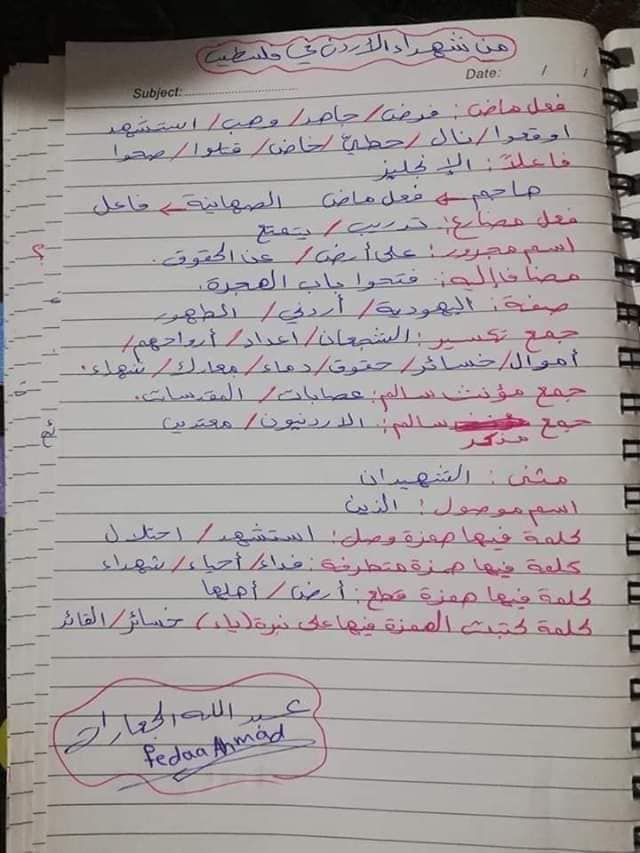 من شهداء الأردن في فلسطين
Subject:
Date: / /
فعل ماض: فرض/ جاهد/ وهب/ استشهد
اوقعوا/ نال/ حطي/ خاض/ قتلوا/ ضحوا
فاعلاً: الإنجليز
هاجم ← فعل ماض الصهاينة ← فاعل
فعل مضارع: تدريب/ يتمتع
اسم مجرور: على أرض/ عن الحقوق.
مضاف إليه: فتحوا باب الهجرة.
صفة: اليهودية/ أردني/ الطهور
جمع تكسير: الشجعان/ اعداد/ أرواحهم/
أموال/ خسائر/ حقوق/ دماء/ معارك/ شهداء.
جمع مؤنث سالم: عصابات/ المقدسات.
جمع سالم: الاردنيون/ معتدين
مذكر
مثنى: الشهيدان
اسم موصول: الذين
كلمة فيها همزة وصل: استشهد/ احتلال
كلمة فيها همزة متطرفة: فداء/ أحياء/ شهداء
كلمة فيها همزة قطع: أرض/ أهلها
كلمة كتبت الهمزة فيها على نبرة (ياء) خسائر/ القائد
عبد الله الجعارات
fedaa Ahmad